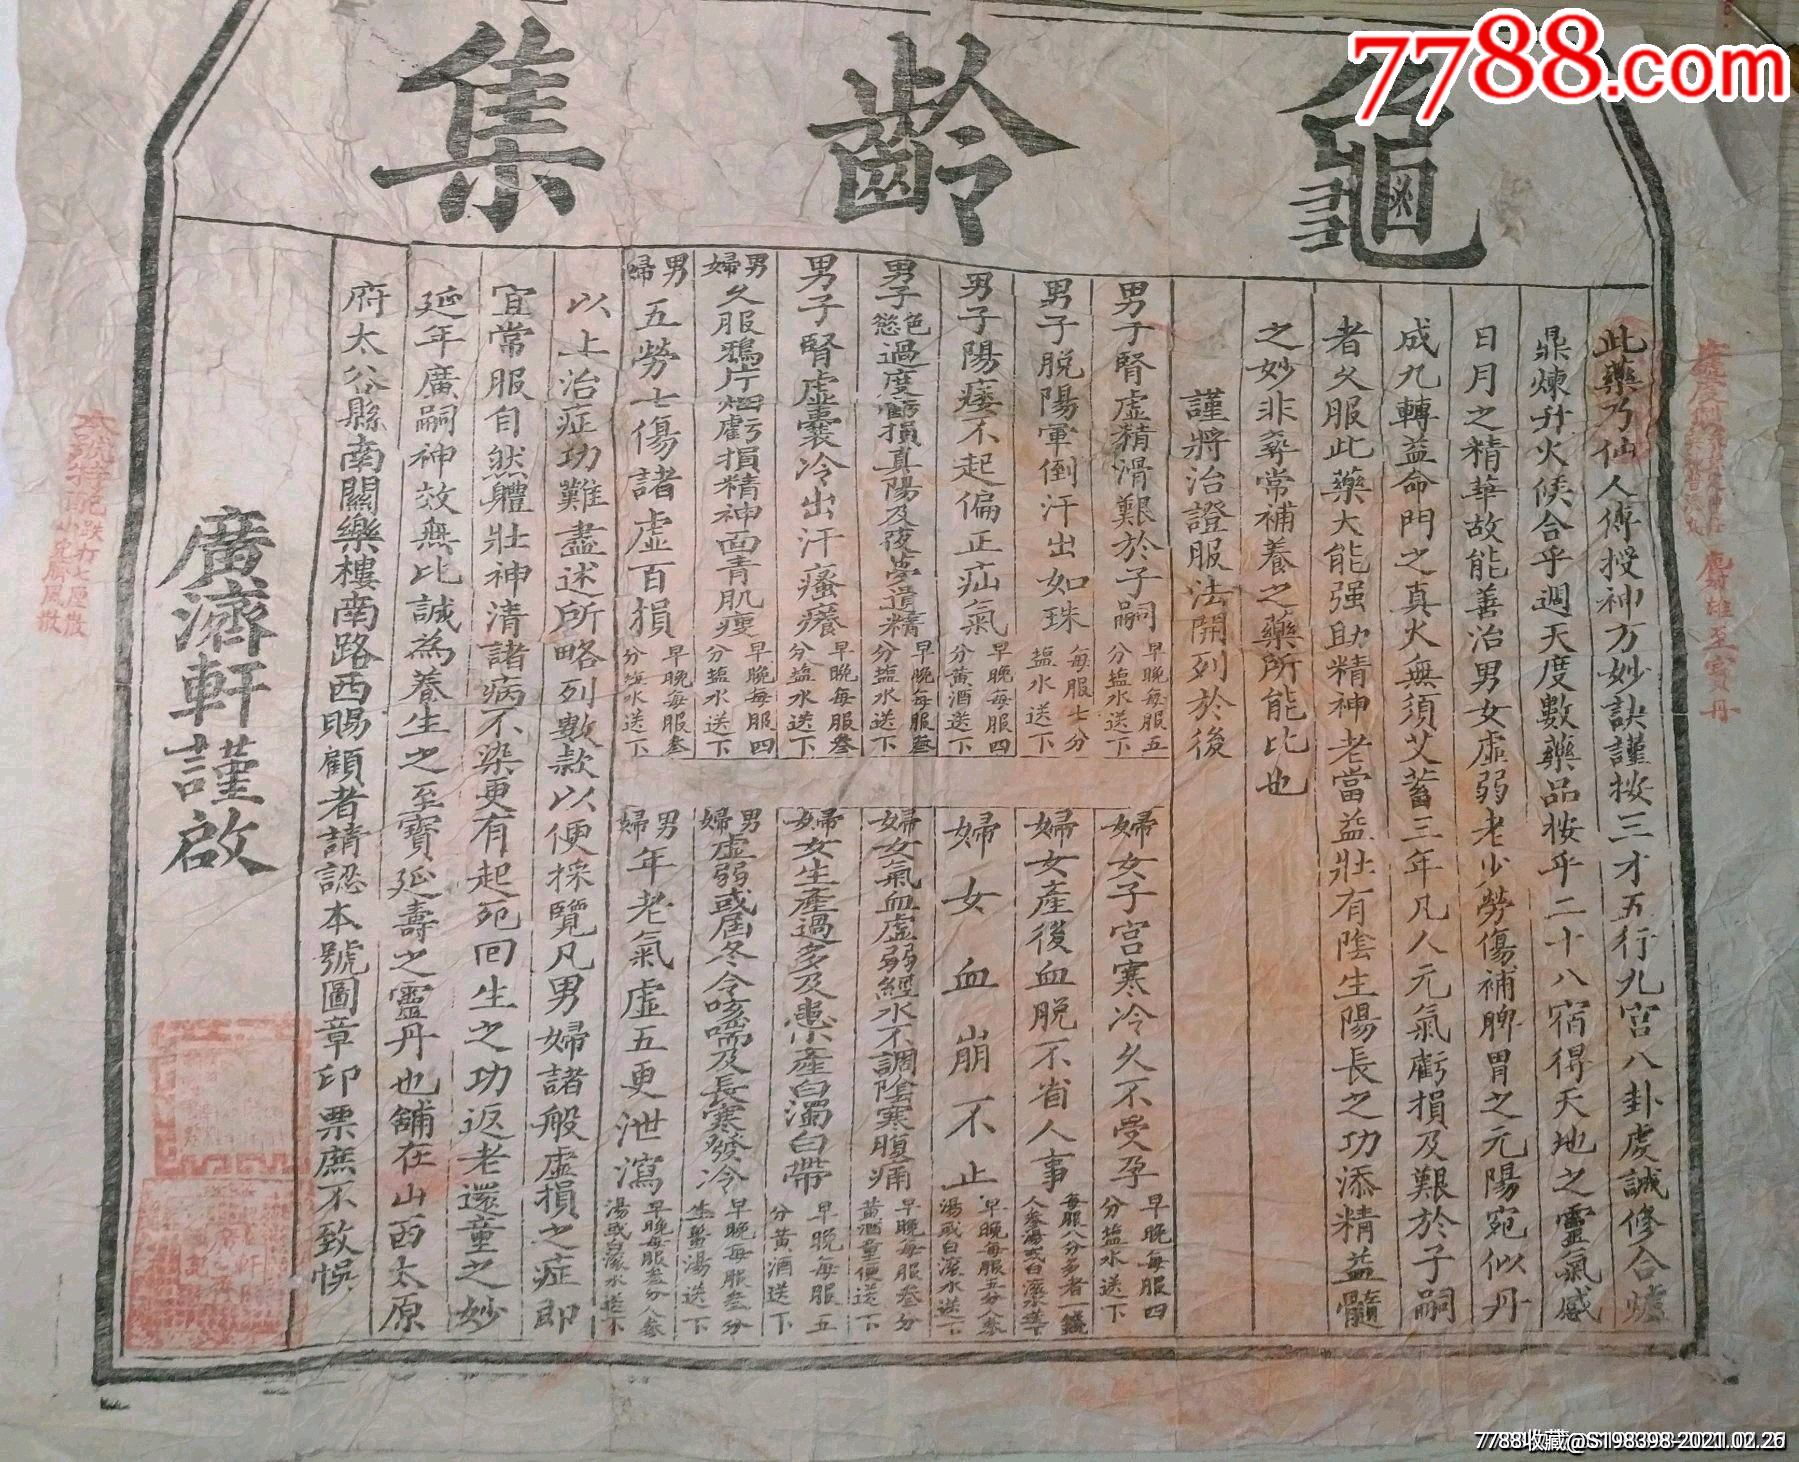 7788.com
龜齡集
此藥乃仙人傳授神方妙訣謹按三才五行九宮八卦虔誠修合爐
鼎煉升火候合乎週天度數藥品按乎二十八宿得天地之靈氣感
日月之精華故能善治男女虛弱老少勞傷補脾胃之元陽宛似丹
成九轉益命門之真火無須艾蓄三年凡人元氣虧損及艱於子嗣
者久服此藥大能强助精神老當益壯有陰生陽長之功添精益髓
之妙非尋常補養之藥所能比也
謹將治證服法開列於後
男子腎虛精滑艱於子嗣 早晚每服五分塩水送下
男子脱陽暈倒汗出如珠 每服七分塩水送下
男子陽痿不起偏正疝氣 早晚每服四分黄酒送下
男子色慾過度虧損真陽及夜夢遺精 早晚每服叁分塩水送下
男子腎虛囊冷出汗瘙癢 早晚每服叁分塩水送下
男婦久服鴉片烟虧損精神面青肌瘦 早晚每服四分塩水送下
男婦五勞七傷諸虛百損 早晚每服叁分塩水送下
婦女子宮寒冷久不受孕 早晚每服四分塩水送下
婦女產後血脱不省人事 每服八分多者一錢人參湯或白滾水送下
婦女血崩不止 早晚每服五分人參湯或白滾水送下
婦女氣血虛弱經水不調陰寒腹痛 早晚每服叁分黄酒童便送下
婦女生產過多及患小產白濁白帶 早晚每服五分黄酒送下
男婦虛弱或屆冬令咳喘及長寒發冷 早晚每服叁分生薑湯送下
男婦年老氣虛五更泄瀉 早晚每服叁分人參湯或白滾水送下
以上治症功難盡述所略列數款以便採覽凡男婦諸般虛損之症即
宜常服自然體壯神清諸病不染更有起死回生之功返老還童之妙
延年廣嗣神效無比誠為養生之至寶延壽之靈丹也舖在山西太原
府太谷縣南關樂樓南路西賜顧者請認本號圖章印票庶不致悞
廣濟軒謹啟
鹿茸雄至寶丹
本號特配跌打七厘散
7788收藏@S198398-2021.02.26